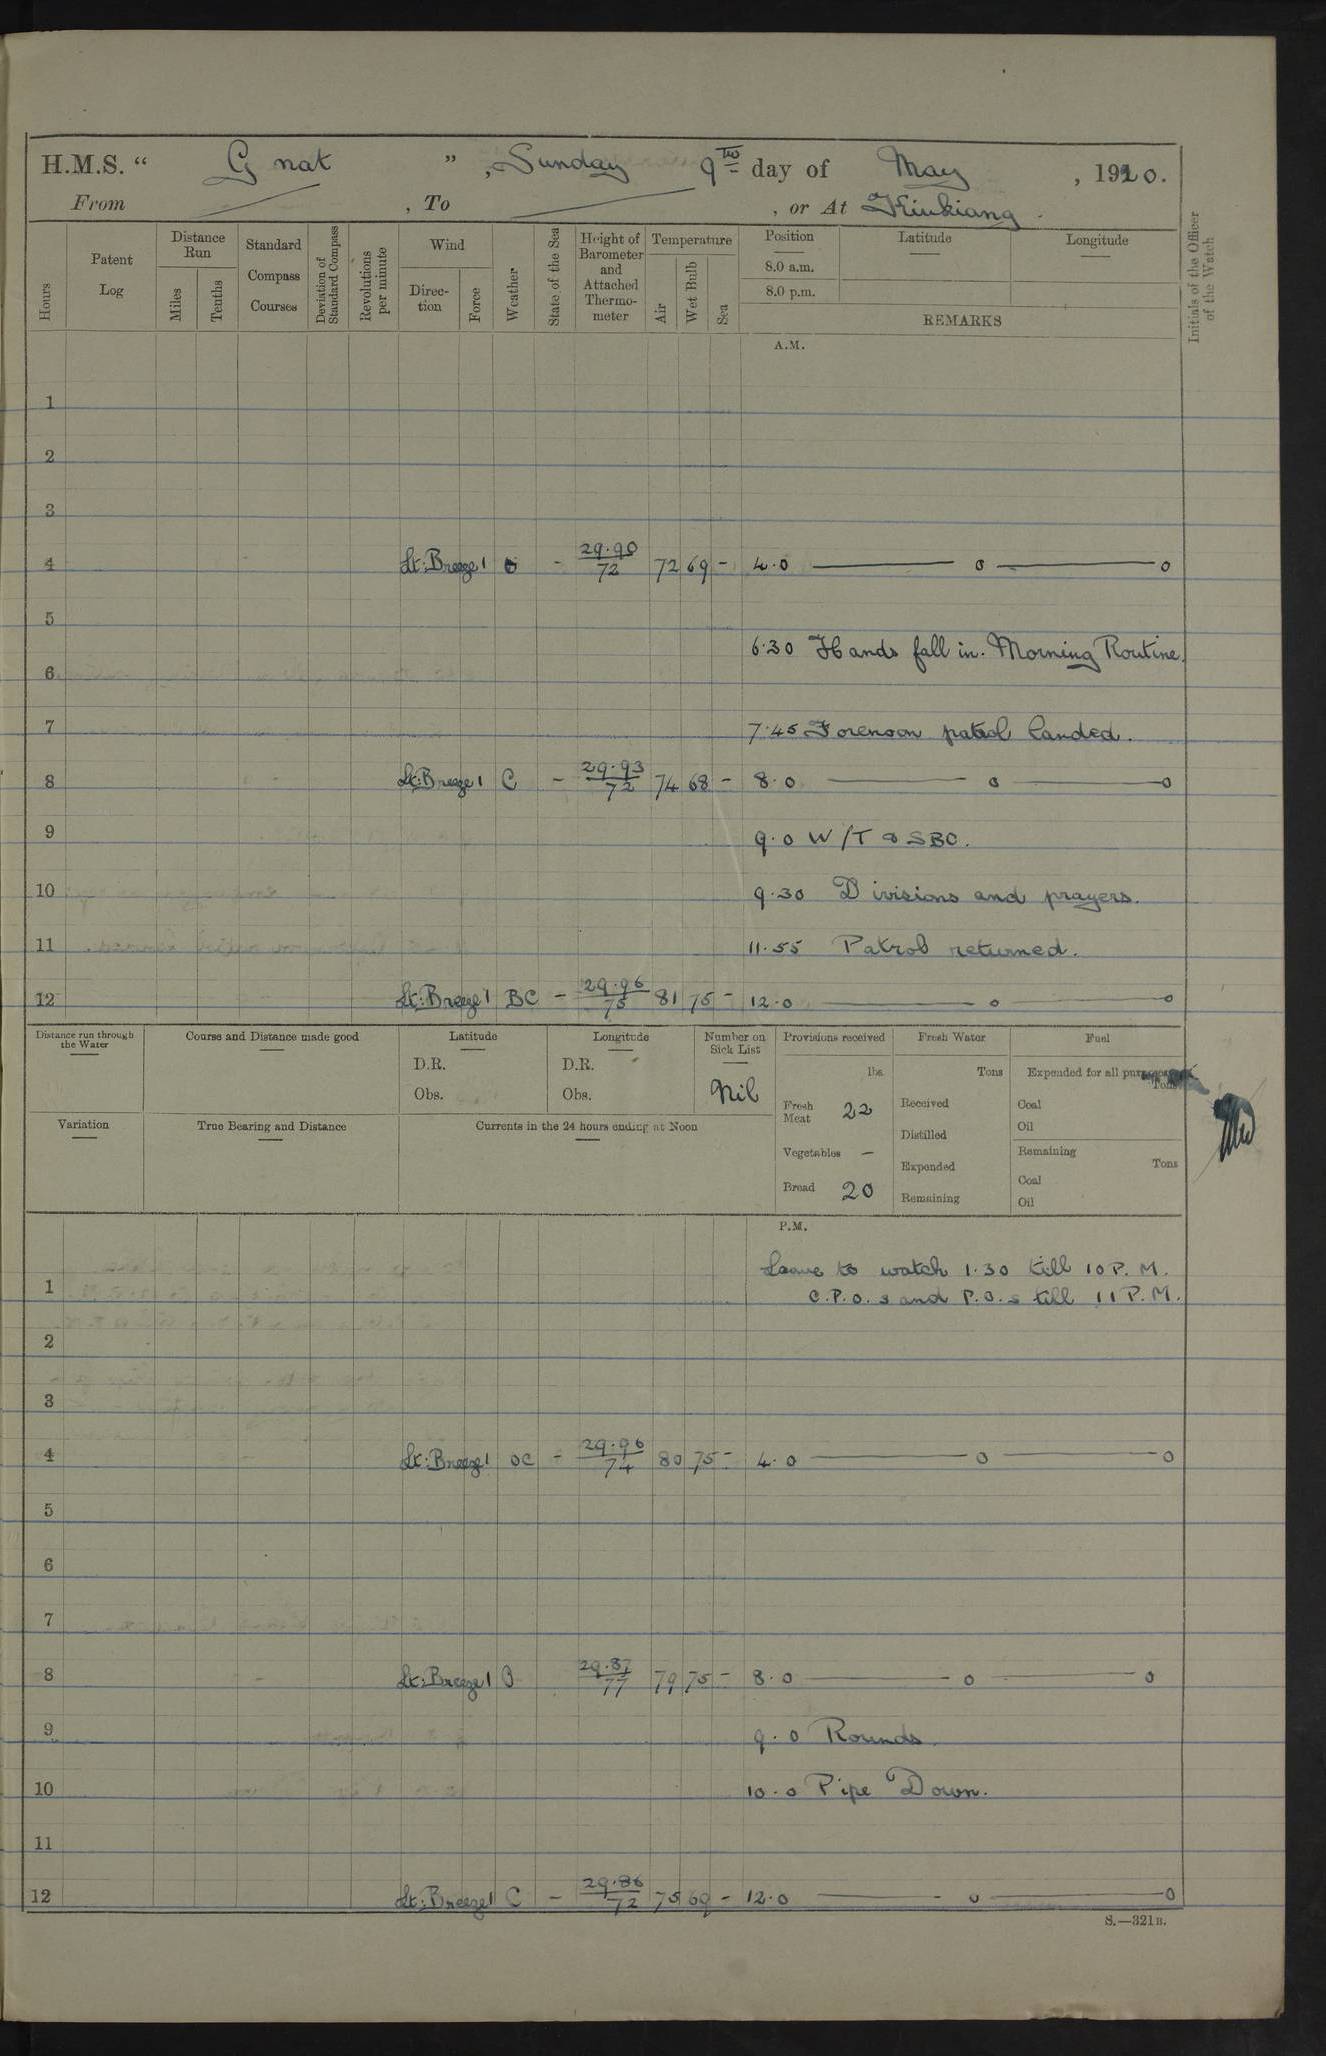 H.M.S. “ Gnat ”, Sunday 9th day of May, 1920.
From , To , or At Kiukiang.
Hours
Patent Log
Distance Run
Miles
Tenths
Standard Compass Courses
Deviation of Standard Compass
Revolutions per minute
Wind
Direction
Force
Weather
State of the Sea
Height of Barometer and Attached Thermometer
Temperature
Air
Wet Bulb
Sea
Position
8.0 a.m.
8.0 p.m.
Latitude
Longitude
REMARKS
Initials of the Officer of the Watch
A.M.
1
2
3
4 Lt: Breeze 1 - 29.90/72 72 69 - 4.0 — o — o
5
6.30 Hands fall in. Morning Routine.
6
7 7.45 Forenoon patrol landed.
8 Lt: Breeze 1 C - 29.93/72 74 68 - 8.0 — o — o
9 9.0 W/T & SBC.
10 9.30 Divisions and prayers.
11 11.55 Patrol returned.
12 Lt: Breeze 1 BC - 29.96/75 81 75 - 12.0 — o — o
Distance run through the Water
Course and Distance made good
Latitude
D.R.
Obs.
Longitude
D.R.
Obs.
Number on Sick List
Nil
Provisions received
lbs.
Fresh Meat 22
Vegetables —
Bread 20
Fresh Water
Tons
Received
Distilled
Expended
Remaining
Fuel
Expended for all purposes
Tons
Coal
Oil
Remaining
Tons
Coal
Oil
Variation
True Bearing and Distance
Currents in the 24 hours ending at Noon
P.M.
Leave to watch 1.30 till 10 P.M.
1 C.P.O.s and P.O.s till 11 P.M.
2
3
4 Lt: Breeze 1 OC - 29.96/74 80 75 - 4.0 — o — o
5
6
7
8 Lt: Breeze 1 29.87/77 79 75 - 8.0 — o — o
9 9.0 Rounds.
10 10.0 Pipe Down.
11
12 Lt: Breeze 1 C - 29.86/72 75 69 - 12.0 — o — o
S.—321B.